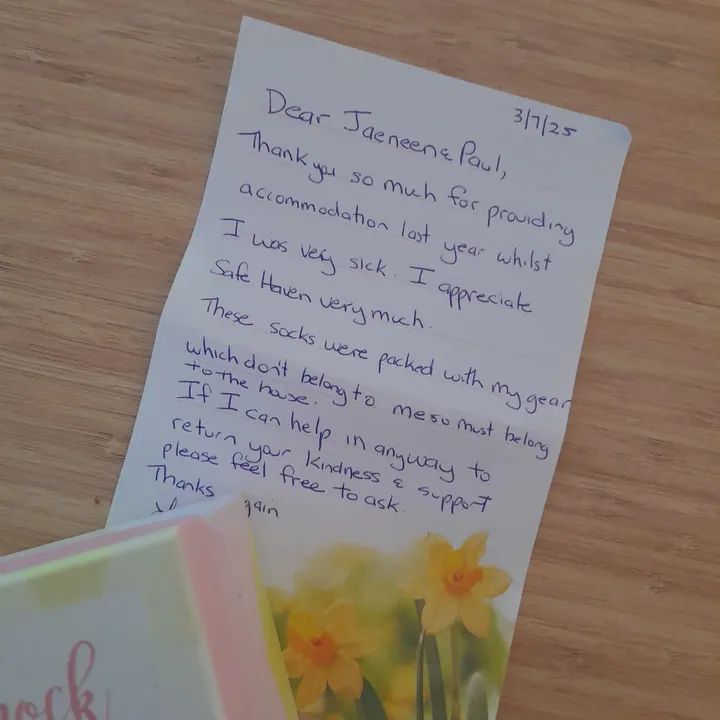 3/7/25
Dear Jaeneen & Paul,
Thank you so much for providing
accommodation last year whilst
I was very sick. I appreciate
Safe Haven very much.
These socks were packed with my gear
which don't belong to me so must belong
to the house.
If I can help in anyway to
return your kindness & support
please feel free to ask.
Thanks
gain
ock